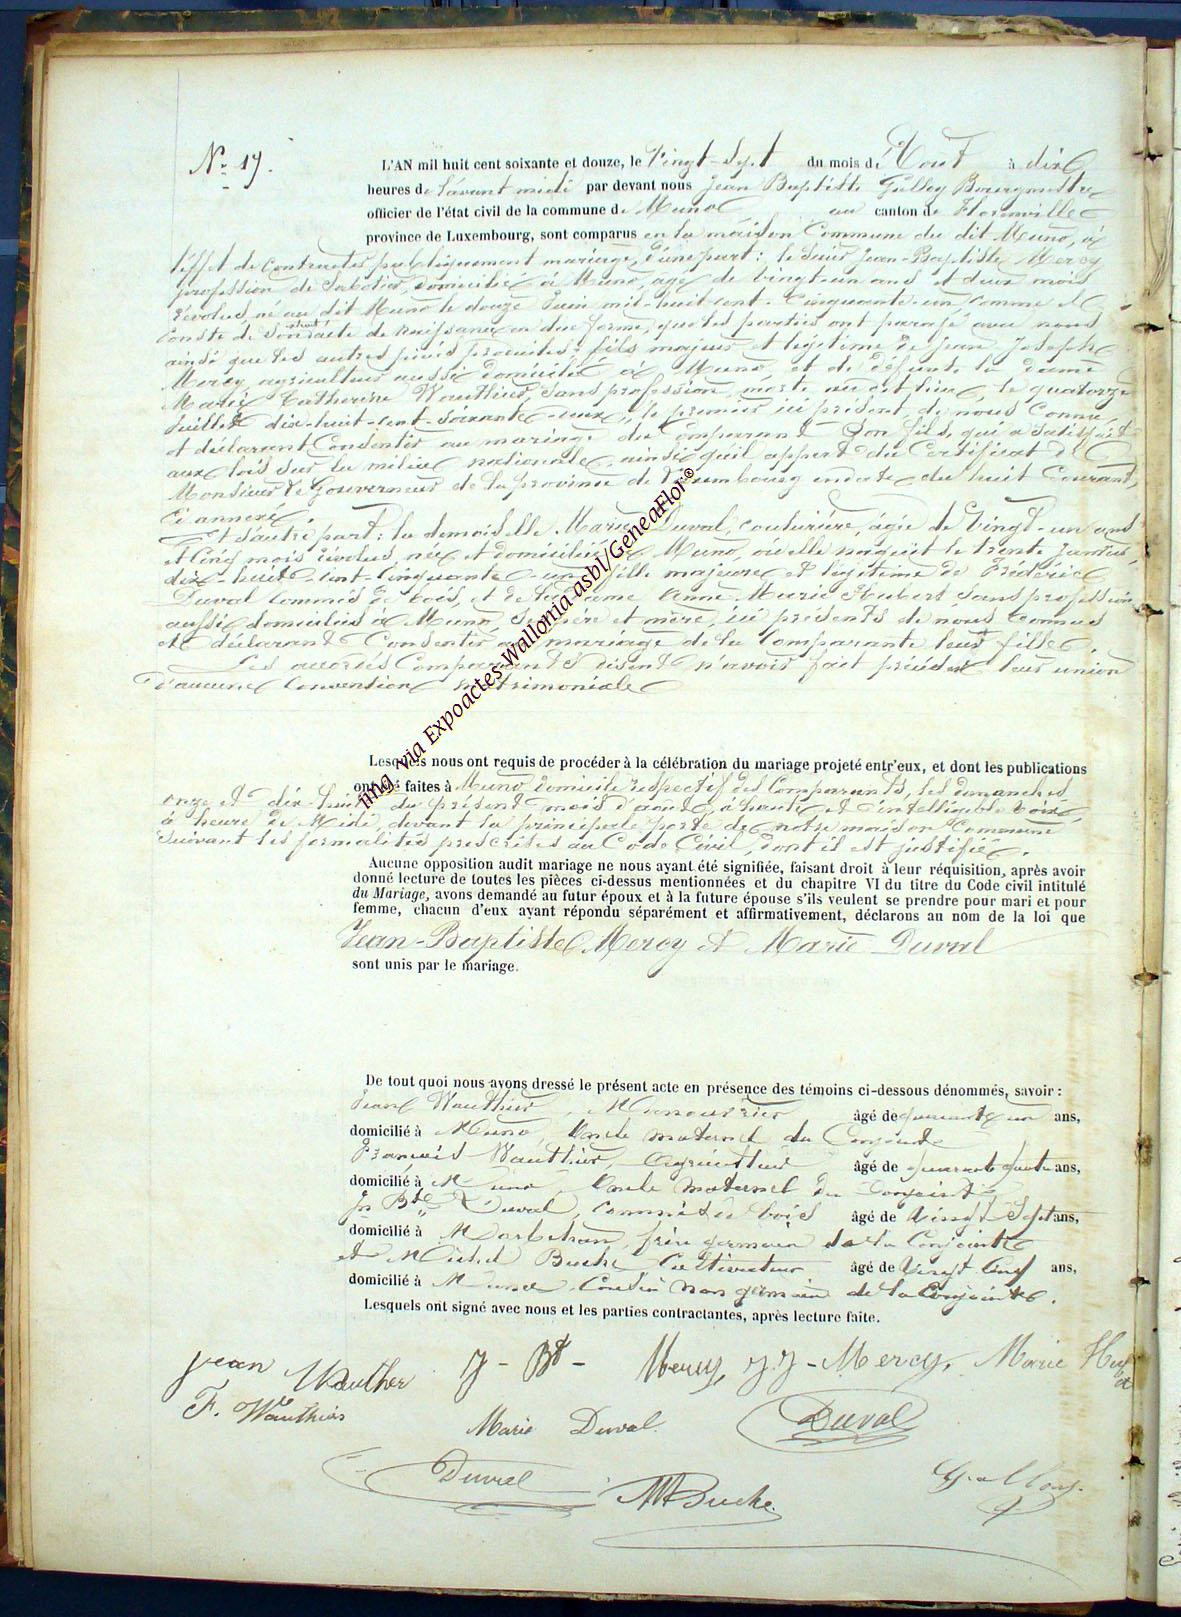 No 19.
L'AN mil huit cent soixante et douze, le Vingt-Sept du mois d'Aout à dix
heures de l'avant midi par devant nous Jean Baptiste Bourgmestre
officier de l'état civil de la commune de Muno au canton de Florenville
province de Luxembourg, sont comparus en la maison Commune du dit Muno, à
l'effet de contracter publiquement mariage, d'une part: le Sieur Jean-Baptiste Mercy
profession de Sabotier, domicilié à Muno, agé de vingt-un ans et deux mois
révolus, né au dit Muno le douze Juin mil-huit cent-Cinquante-un, comme il
Conste de l'acte de naissance en due forme, que les parties ont parafé avec nous
ainsi que les autres pièces produites; fils majeur et légitime de Jean Joseph
Mercy agriculteur aussi domicilié à Muno, et de défunte la dame
Marie Catherine Wauthier, Sans profession, morte au dit lieu, le quatorze
Juillet dix-huit-cent-soixante-deux; le premier ici présent, de nous Connu
et déclarant Consentir au mariage du Comparant Son fils, qui a Satisfait
aux lois sur la milice nationale, ainsi qu'il appert du Certificat de
Monsieur le Gouverneur de la province de Luxembourg en date du huit Courant,
Ci annexé.
Et d'autre part: la demoiselle Marie Duval, couturière, âgée de Vingt-un ans
et Cinq mois révolus, née et domiciliée à Muno, où elle naquit le trente Janvier
dix-huit-cent-Cinquante-un, fille majeure et légitime de Fréderic
Duval Commis de bois, et de la dame Anne Marie Hubert Sans profession,
aussi domiciliés à Muno, Ses père et mère, ici présents de nous Connus
et déclarant Consentir au mariage de la Comparante leur fille.
Les accordés Comparants disent n'avoir fait précéder leur union
d'aucune Convention matrimoniale
img via Expoactes-Wallonia asbl/GeneaFlor®
Lesquels nous ont requis de procéder à la célébration du mariage projeté entr'eux, et dont les publications
ont été faites à Muno domicile respectif des Comparants, les dimanches
onze et dix huit du présent mois d'août, à haute et intelligible voix,
à heure de Midi, devant la principale porte de notre maison Commune
Suivant les formalités prescrites au Code Civil, dont il est justifié.
Aucune opposition audit mariage ne nous ayant été signifiée, faisant droit à leur réquisition, après avoir
donné lecture de toutes les pièces ci-dessus mentionnées et du chapitre VI du titre du Code civil intitulé
du Mariage, avons demandé au futur époux et à la future épouse s'ils veulent se prendre pour mari et pour
femme, chacun d'eux ayant répondu séparément et affirmativement, déclarons au nom de la loi que
Jean-Baptiste Mercy et Marie Duval
sont unis par le mariage.
De tout quoi nous avons dressé le présent acte en présence des témoins ci-dessous dénommés, savoir :
Jean Wauthier, Manouvrier âgé de quarante un ans,
domicilié à Muno, Oncle maternel du Conjoint
François Wauthier, Agriculteur âgé de quarante quatre ans,
domicilié à Muno Oncle maternel du Conjoint
Jn Bte Duval, Commis de bois âgé de Vingt Sept ans,
domicilié à Marbehan, frère germain de la Conjointe
et Michel Buche Cultivateur âgé de Vingt Cinq ans,
domicilié à Muno Cousin non germain de la Conjointe.
Lesquels ont signé avec nous et les parties contractantes, après lecture faite.
Jean Wauthier J-Bt- Mercy, J.J-Mercy, Marie Hubert
F. Wauthier
Marie Duval. Duval
Duval MBuche.